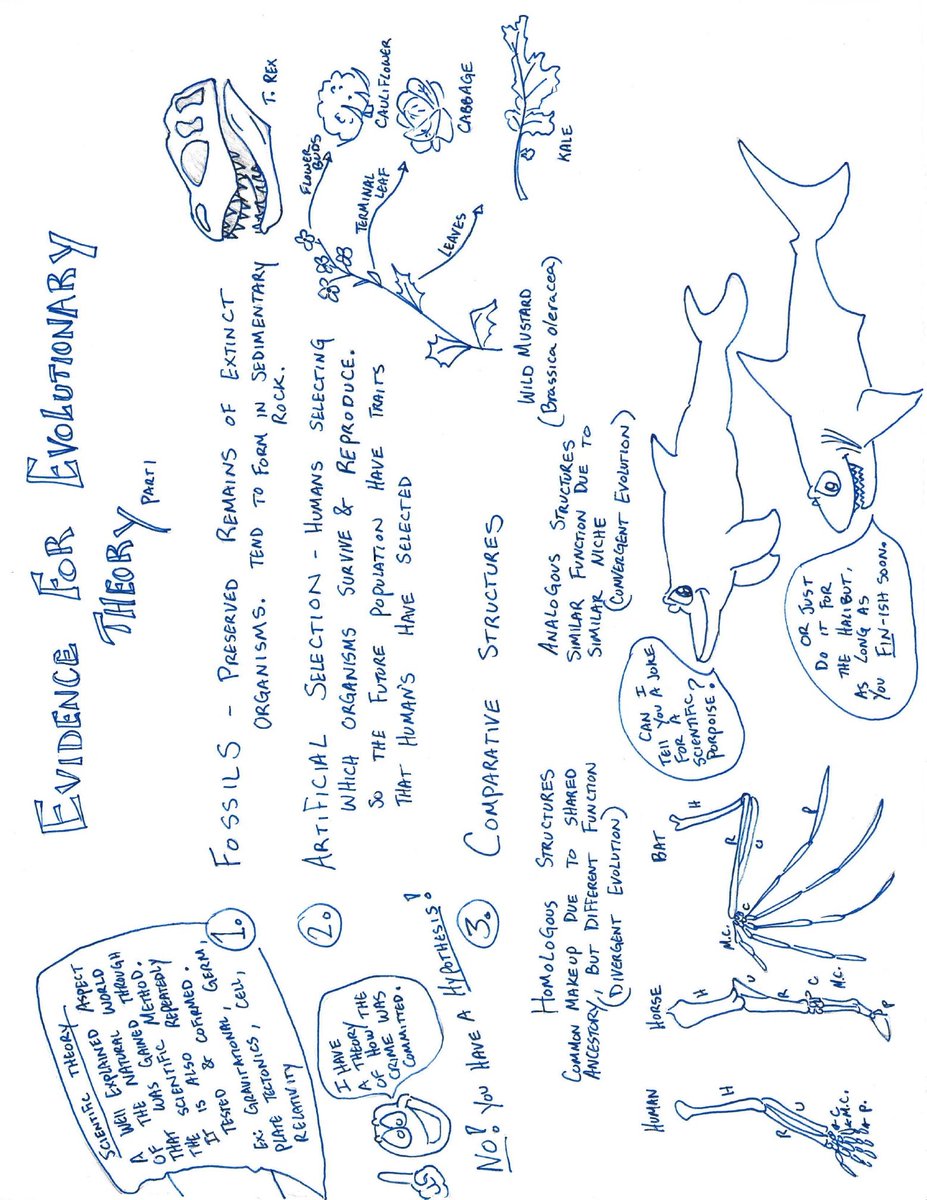 EVIDENCE FOR EVOLUTIONARY
THEORY PART 1
SCIENTIFIC THEORY
A WELL EXPLAINED ASPECT
OF THE NATURAL WORLD
THAT WAS GAINED THROUGH
THE SCIENTIFIC METHOD.
IT IS ALSO REPEATEDLY
TESTED & COFIRMED.
EX: GRAVITATIONAL, GERM,
PLATE TECTONICS, CELL,
RELATIVITY
1. FOSSILS - PRESERVED REMAINS OF EXTINCT
ORGANISMS. TEND TO FORM IN SEDIMENTARY
ROCK.
T. REX
2. ARTIFICIAL SELECTION - HUMANS SELECTING
WHICH ORGANISMS SURVIVE & REPRODUCE.
SO THE FUTURE POPULATION HAVE TRAITS
THAT HUMAN'S HAVE SELECTED
I HAVE
A THEORY
OF HOW THE
CRIME WAS
COMMITTED.
NO! YOU HAVE A HYPOTHESIS!
FLOWER
BUDS
CAULIFLOWER
TERMINAL
LEAF
CABBAGE
LEAVES
KALE
WILD MUSTARD
(Brassica oleracea)
3. COMPARATIVE STRUCTURES
HOMOLOGOUS STRUCTURES
COMMON MAKEUP DUE TO SHARED
ANCESTORY, BUT DIFFERENT FUNCTION
(DIVERGENT EVOLUTION)
HUMAN
H
R
U
C.
M.C.
P.
HORSE
H
U
R
C
M.C.
P
BAT
H
R
U
C
M.C.
P
ANALOGOUS STRUCTURES
SIMILAR FUNCTION DUE TO
SIMILAR NICHE
(CONVERGENT EVOLUTION)
CAN I
TELL YOU A JOKE
FOR A
SCIENTIFIC
PORPOISE?
OR JUST
DO IT FOR
THE HALIBUT,
AS LONG AS
YOU FIN-ISH SOON.